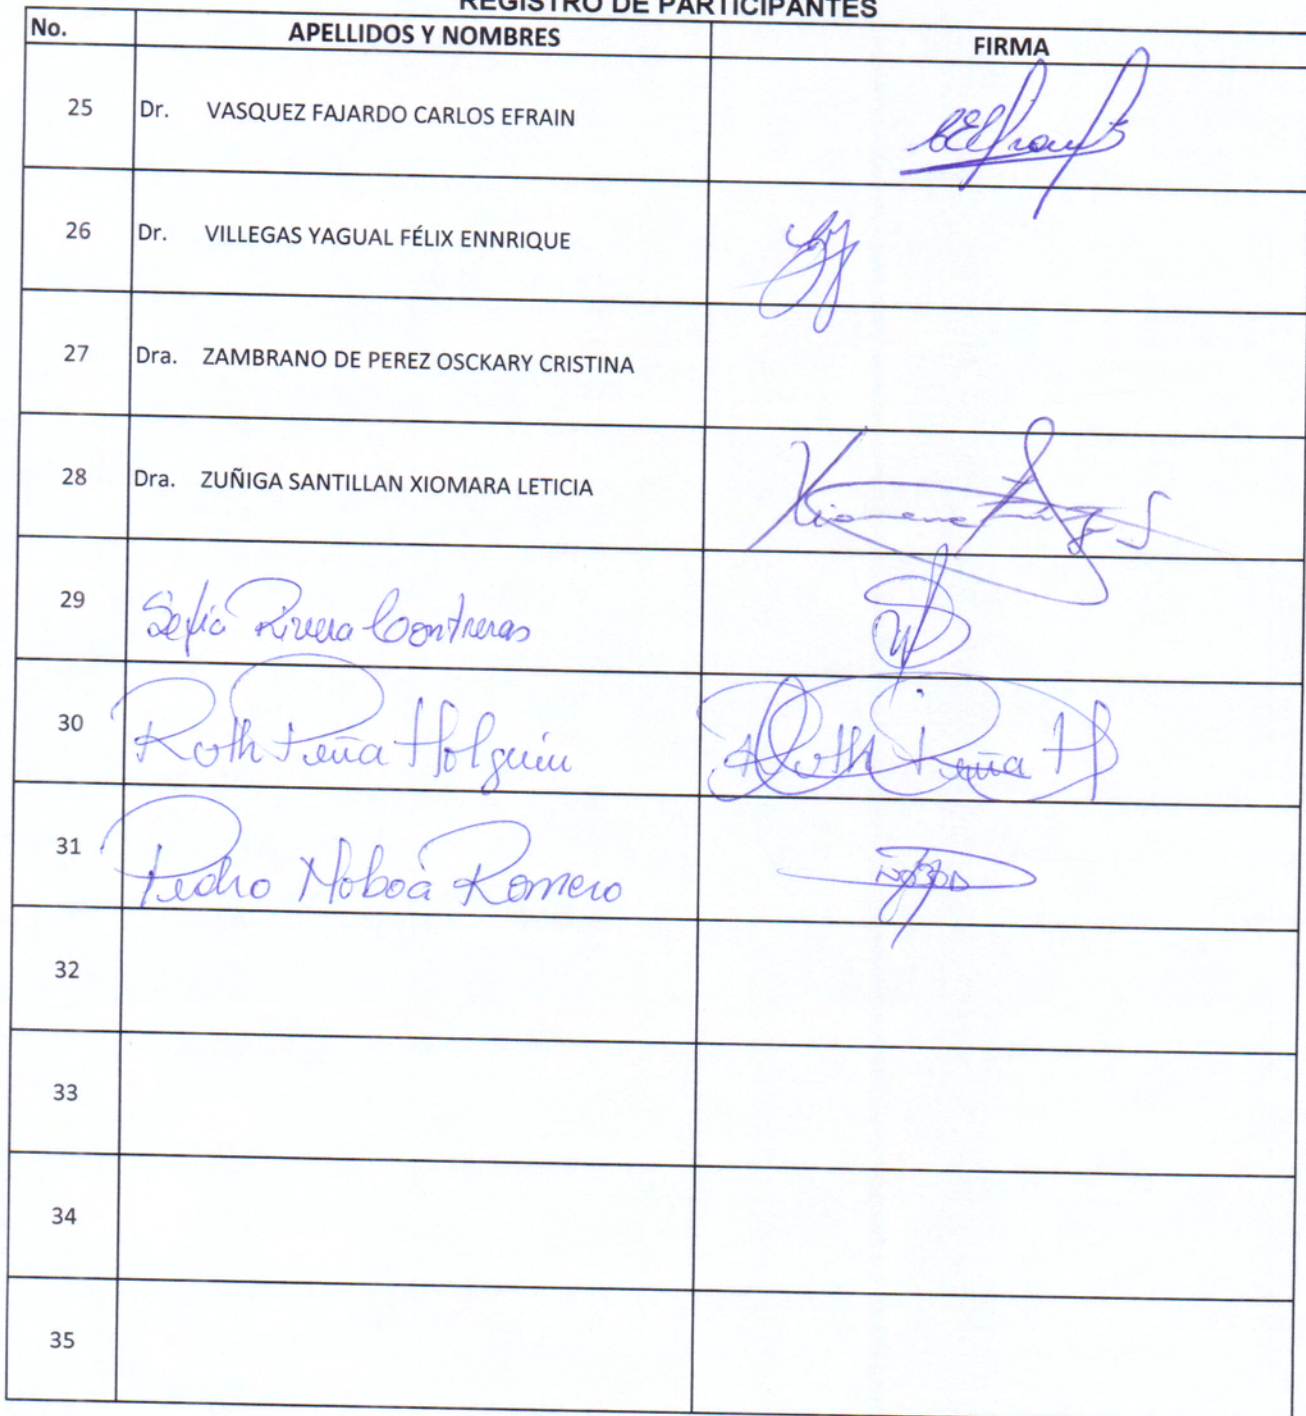 REGISTRO DE PARTICIPANTES
No. APELLIDOS Y NOMBRES FIRMA
25 Dr. VASQUEZ FAJARDO CARLOS EFRAIN
26 Dr. VILLEGAS YAGUAL FÉLIX ENNRIQUE
27 Dra. ZAMBRANO DE PEREZ OSCKARY CRISTINA
28 Dra. ZUÑIGA SANTILLAN XIOMARA LETICIA
29 Sofía Rivera Contreras
30 Roth Peña Holguin Roth Peña H
31 Pedro Noboa Romero
32
33
34
35